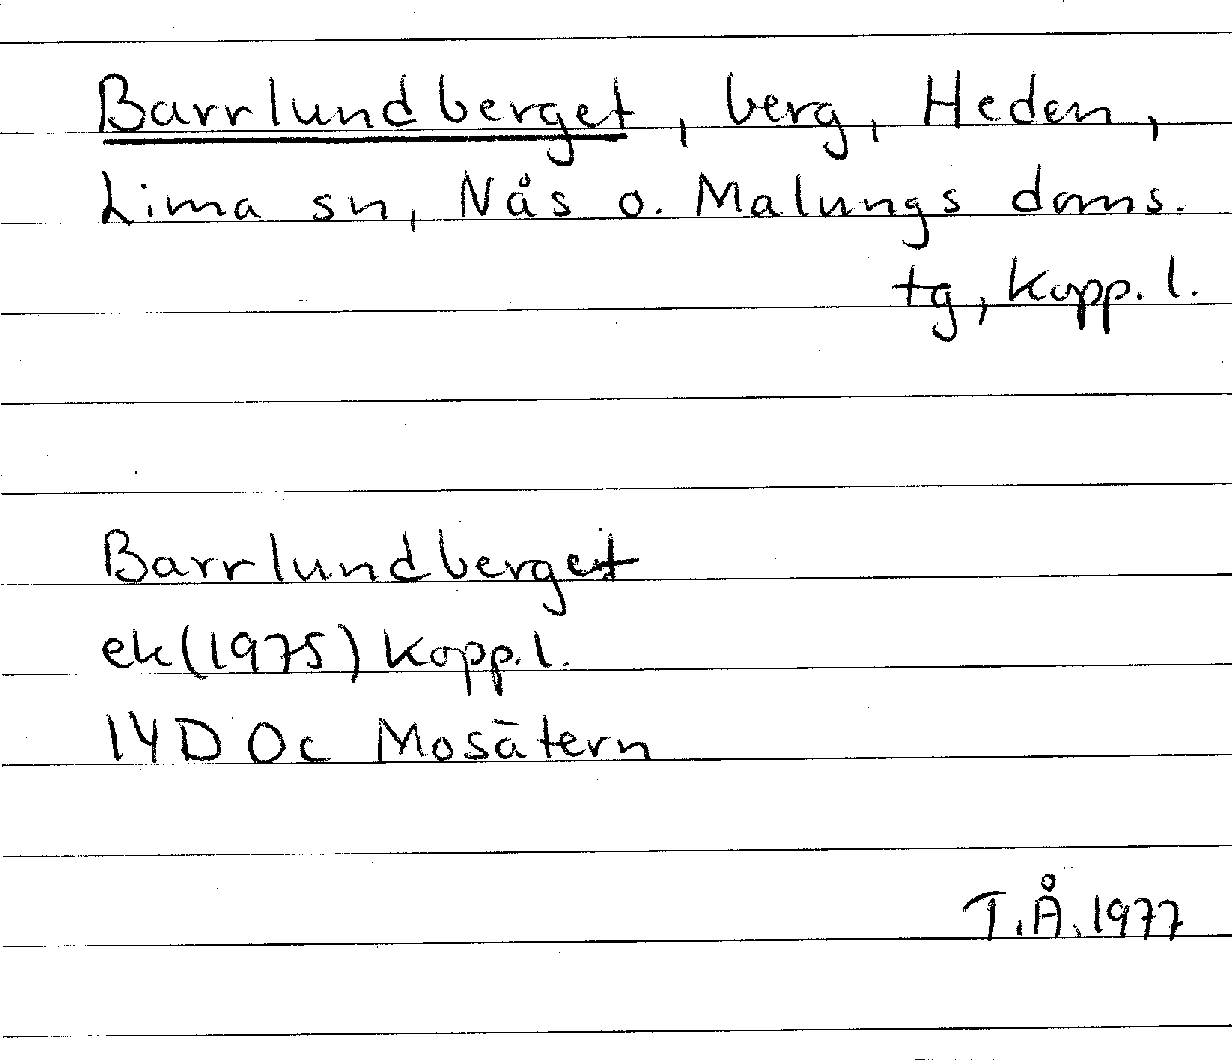 Barrlundberget, berg, Heden,
Lima sn, Nås o. Malungs doms.
tg, Kopp. l.
Barrlundberget
ek(1975) Kopp. l.
14D 0c Mosätern
T.Å. 1977